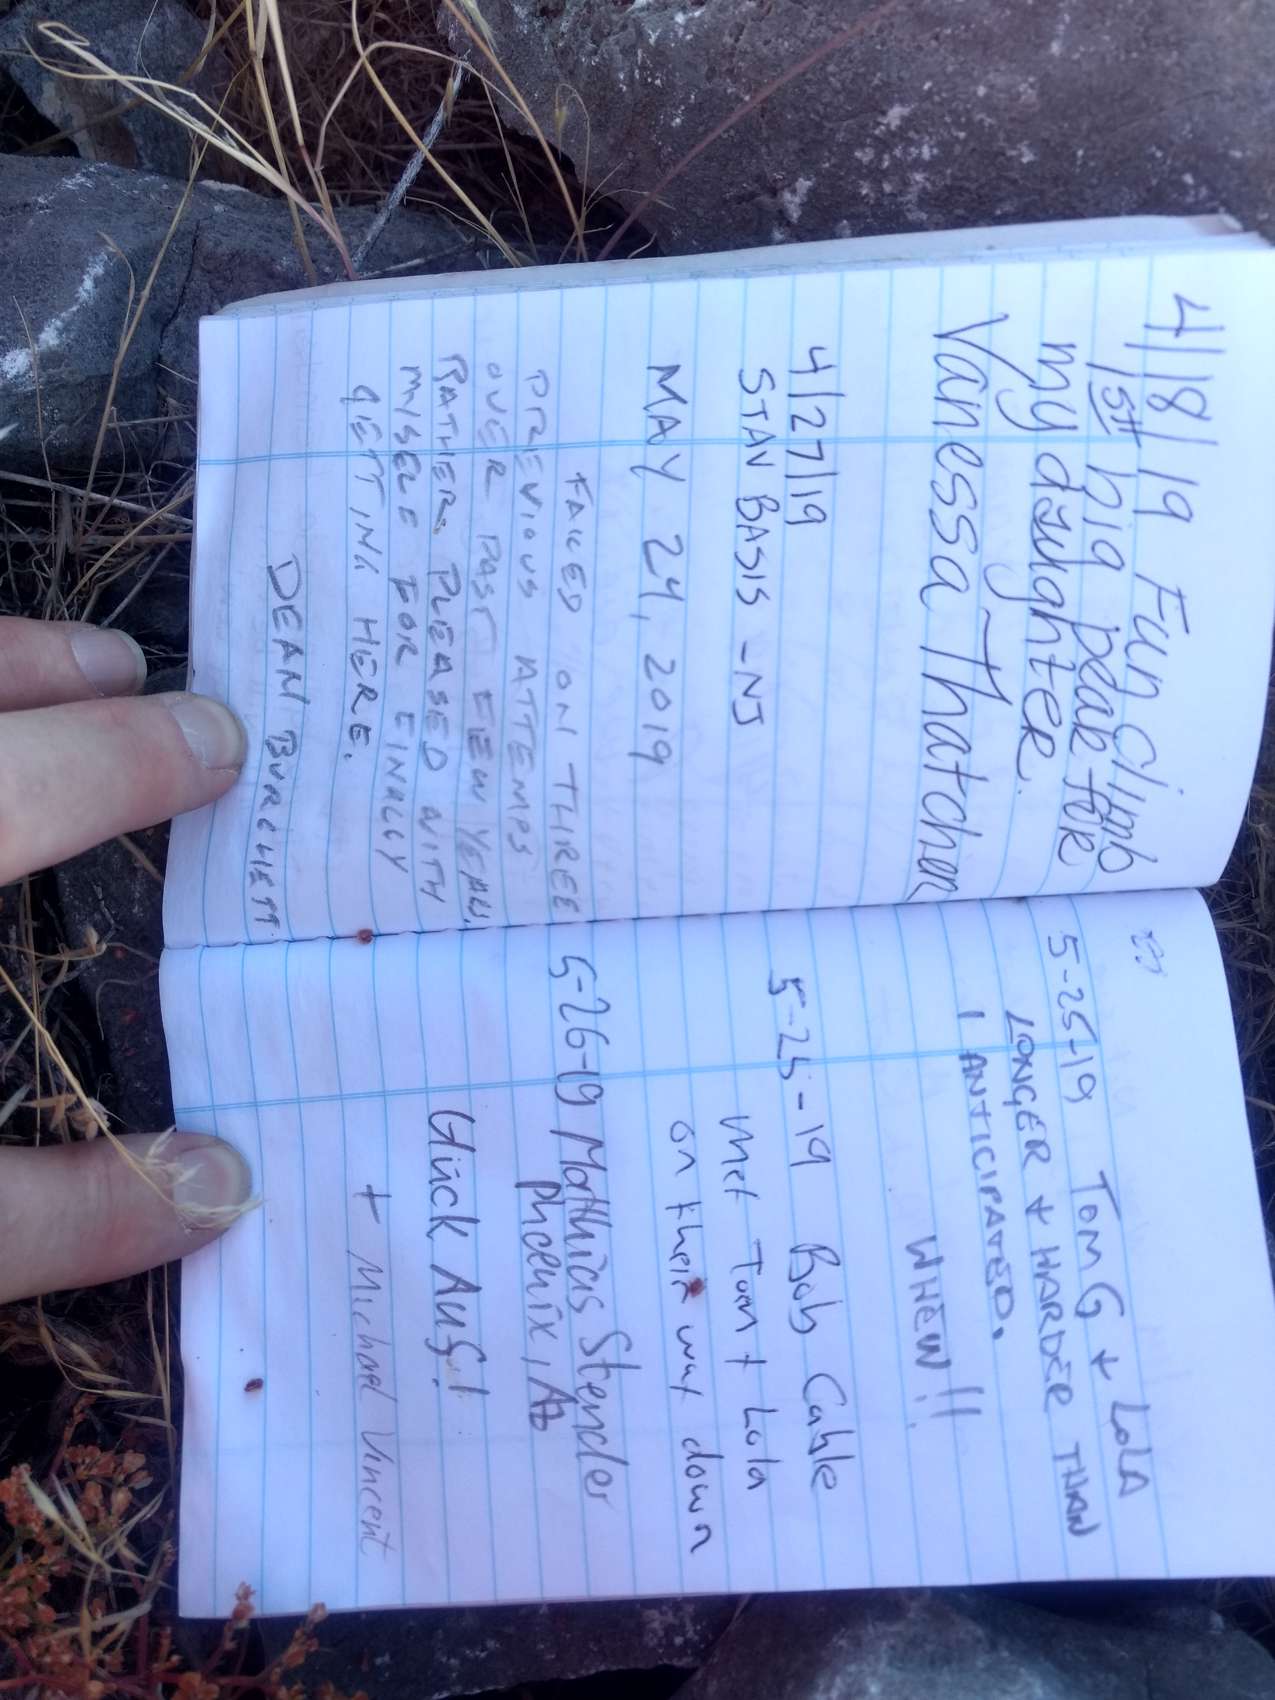 4/18/19 Fun Climb
1st big peak for
my daughter.
Vanessa Thatcher
4/27/19
STAV BASIS - NJ
MAY 24, 2019
FAILED ON THREE
PREVIOUS ATTEMPS
OVER PAST FEW YEARS.
RATHER PLEASED WITH
MYSELF FOR FINALLY
GETTING HERE.
DEAN BURCHETT
5-25-19 TOM G + LOLA
LONGER + HARDER THAN
I ANTICIPATED.
WHEW!!
5-25-19 Bob Cable
Met Tom + Lola
on their wat down
5-26-19 Matthias Stendler
Phoenix, Az
Glück Auf!
+ Michael Vincent